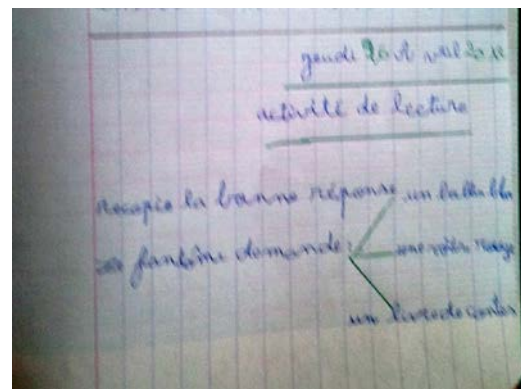 jeudi 26 Avril 20
activité de lecture
recopie la bonne réponse un
fantôme demande : une rouge
un livre de contes